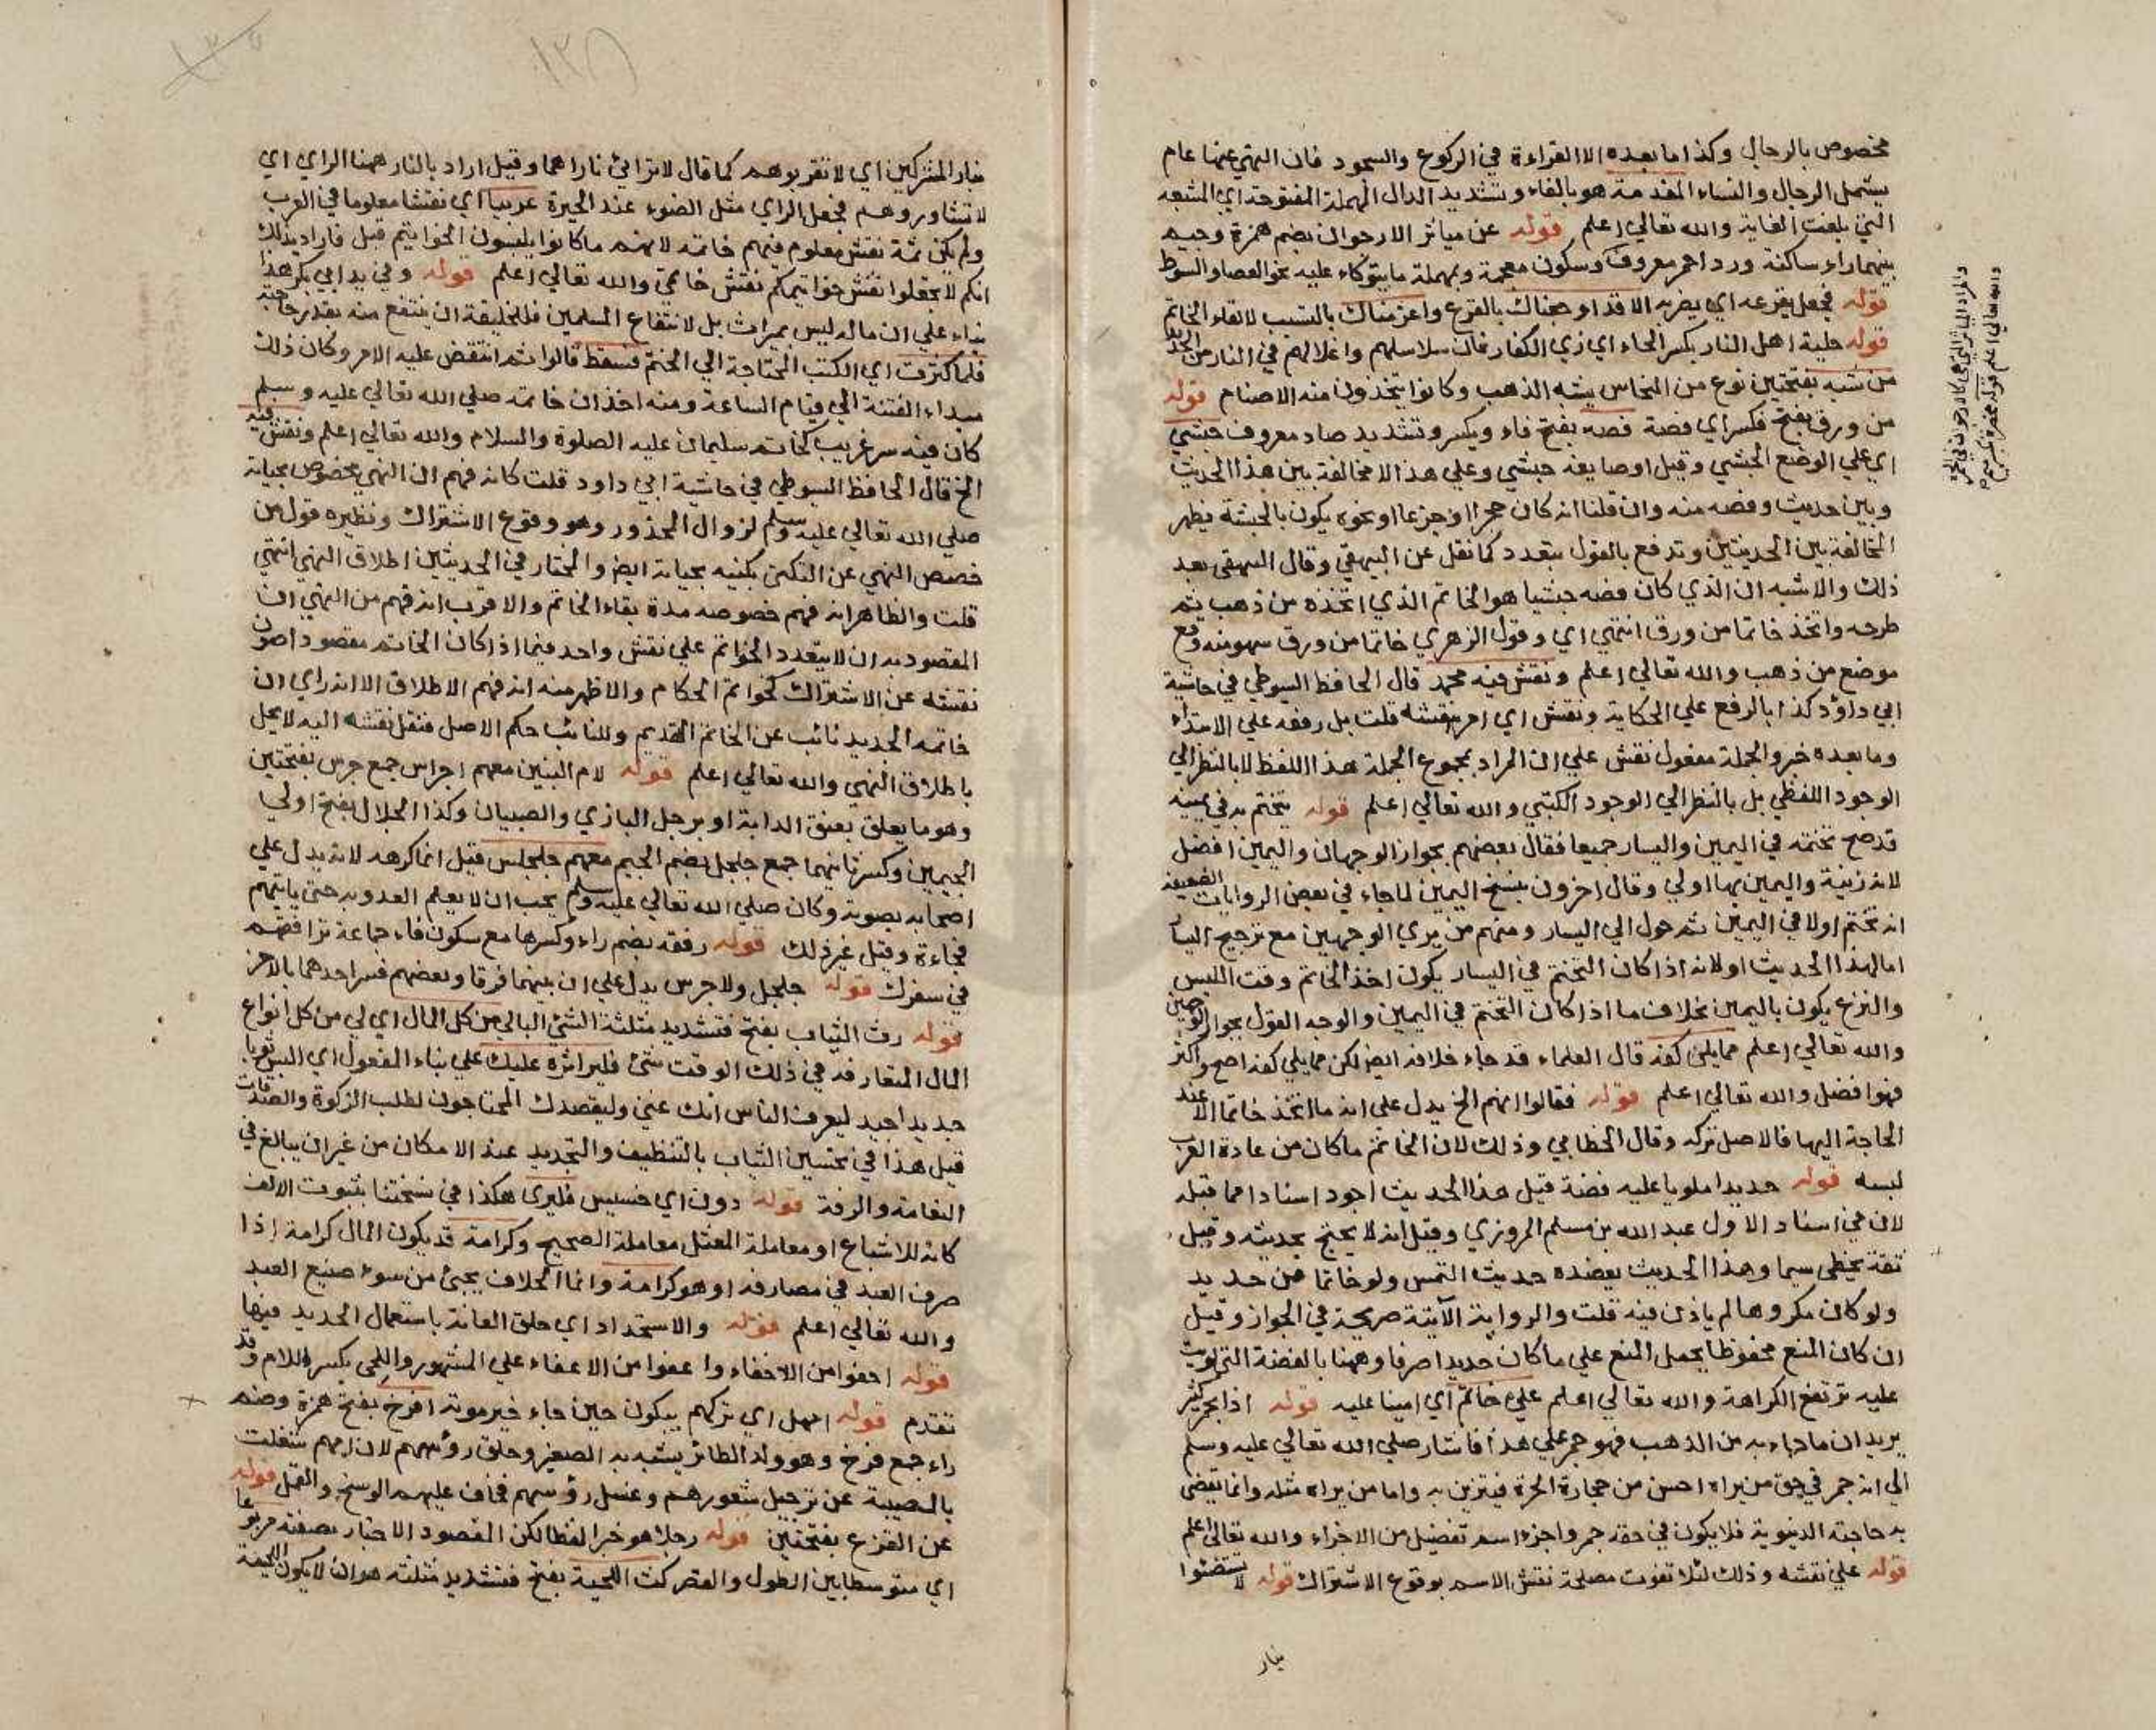 مخصوص بالرجال وكذا ما بعده الا القراءة في الركوع والسجود فان النهي عنها عام
يشمل الرجال والنساء المفدمة هو بالفاء وتشديد الدال المهملة المفتوحة اي المشبعة
التي بلغت الغاية والله تعالي اعلم قوله عن مياثر الارجوان بضم همزة وجيم
بينهما راء ساكنة ورد احمر معروف وسكون معجمة وبمهملة ما يتوكاء عليه نحو العصا والسوط
قوله فجعل يقرعه اي يضربه الا قد اوجعناك بالقرع واغرمناك بالتسبب لالقاء الخاتم
قوله حلية اهل النار بكسر الحاء اي زي الكفار فان سلاسلهم واغلالهم في النار من الحديد
من شبه بفتحتين نوع من النحاس يشبه الذهب وكانوا يتخذون منه الاصنام قوله
من ورق بفتح فكسر اي فضة فصه بفتح فاء ويكسر وتشديد صاد معروف حبشي
اي علي الوضع الحبشي وقيل او صايغه حبشي وعلي هذا لا مخالفة بين هذا الحديث
وبين حديث وفصه منه وان قلنا انه كان حجرا او جزعا او نحوه يكون بالحبشة فيظهر
المخالفة بين الحديثين وتدفع بالقول بتعدد كما نقل عن البيهقي وقال البيهقي بعد
ذلك والاشبه ان الذي كان فصه حبشيا هو الخاتم الذي اتخذه من ذهب ثم
طرحه واتخذ خاتما من ورق انتهي اي وقول الزهري خاتما من ورق سهو منه وقع
موضع من ذهب والله تعالي اعلم ونقش فيه محمد قال الحافظ السيوطي في حاشية
ابي داود كذا بالرفع علي الحكاية ونقش اي امر بنقشه قلت بل رفعه علي الابتداء
وما بعده خبر والجملة مفعول نقش علي ان المراد بمجموع الجملة هذا اللفظ لا بالنظر الي
الوجود اللفظي بل بالنظر الي الوجود الكتبي والله تعالي اعلم قوله يتختم به في يمينه
قد صح تختمه في اليمين واليسار جميعا فقال بعضهم بجواز الوجهان واليمين افضل
لانه زينة واليمين بها اولي وقال اخرون بنسخ اليمين لما جاء في بعض الروايات الضعيفة
انه تختم اولا في اليمين ثم حول الي اليسار ومنهم من يري الوجهين مع ترجيح اليسار
اما لهذا الحديث او لانه اذا كان التختم في اليسار يكون اخذ الخاتم وقت اللبس
والنزع يكون باليمين بخلاف ما اذا كان التختم في اليمين والوجه القول بجواز الوجهين
والله تعالي اعلم مما يلي كفه قال العلماء قد جاء خلافه ايضا لكن مما يلي كفه اصح واكثر
فهو افضل والله تعالي اعلم قوله فقالوا انهم الخ يدل علي انه ما اتخذ خاتما الا عند
الحاجة اليها فالاصل تركه وقال الخطابي وذلك لان الخاتم ما كان من عادة العرب
لبسه قوله حديد ملويا عليه فضة قيل هذا الحديث اجود اسنادا مما قبله
لان في اسناد الاول عبد الله بن مسلم المروزي وقيل انه لا يحتج بحديثه وقيل
ثقة يخطي سيما وهذا الحديث يعضده حديث التمس ولو خاتما من حديد
ولو كان مكروها لم ياذن فيه قلت والرواية الآتية صريحة في الجواز وقيل
ان كان المنع محفوظا يحمل المنع علي ما كان حديدا صرفا وههنا بالفضة التي لويت
عليه ترتفع الكراهة والله تعالي اعلم علي خاتم اي امينا عليه قوله اذا بجمر كثير
يريد ان ما جاء به من الذهب فهو جمر علي هذا فاشار صلي الله تعالي عليه وسلم
الي انه جمر في حق من يراه احسن من حجارة الحرة فيتزين به واما من يراه مثله وانما يقضي
به حاجته الدنيوية فلا يكون في حقه جمر واجزء اسم تفضيل من الاجزاء والله تعالي اعلم
قوله علي نقشه وذلك لئلا تفوت مصلحة نقش الاسم بوقوع الاشتراك قوله لا تستضئوا
بنار
بنار المشركين اي لا تقربوهم كما قال لا تراءي ناراهما وقيل اراد بالنار ههنا الراي اي
لا تشاوروهم فجعل الراي مثل الضوء عند الحيرة عربيا اي نقشا معلوما في العرب
ولم يكن ثمة نقش معلوم فيهم خاتمه لانهم ما كانوا يلبسون الخواتيم قبل فاراد بذلك
انكم لا تجعلوا نقش خواتيمكم نقش خاتمي والله تعالي اعلم قوله وفي يد ابي بكر هذا
بناء علي ان ماله ليس بميراث بل لانتفاع المسلمين فللخليفة ان ينتفع منه بقدر حاجته
فلما كثرت اي الكتب المحتاجة الي الختم فسقط قالوا ثم انتقض عليه الامر وكان ذلك
مبداء الفتنة الي قيام الساعة ومنه اخذ ان خاتمه صلي الله تعالي عليه وسلم
كان فيه سر غريب كخاتم سليمان عليه الصلوة والسلام والله تعالي اعلم ونقش فيه
الخ قال الحافظ السيوطي في حاشية ابي داود قلت كانه فهم ان النهي مخصوص بحياته
صلي الله تعالي عليه وسلم لزوال المحذور وهو وقوع الاشتراك ونظيره قول من
خصص النهي عن التكني بكنيه بحياته ايضا والمختار في الحديثين اطلاق النهي انتهي
قلت والظاهر انه فهم خصوصه مدة بقاء الخاتم والاقرب انه فهم من النهي ان
المقصود به ان لا يتعدد الخواتم علي نقش واحد فيما اذا كان الخاتم مقصود اصون
نقشه عن الاشتراك كخواتم الحكام والاظهر منه انه فهم الاطلاق الا انه راي ان
خاتمه الجديد نائب عن الخاتم القديم وللنائب حكم الاصل فنقل نقشه اليه لا يخل
باطلاق النهي والله تعالي اعلم قوله لام البنين معهم اجراس جمع جرس بفتحتين
وهو ما يعلق بعنق الدابة او برجل البازي والصبيان وكذا الجلاجل بفتح اولي
الجيمين وكسر ثانيهما جمع جلجل بضم الجيم معهم جلجلس قيل انما كرهه لانه يدل علي
اصحابه بصوته وكان صلي الله تعالي عليه وسلم يحب ان لا يعلم العدو به حتي ياتيهم
فجاءة وقيل غير ذلك قوله رفقة بضم راء وكسرها مع سكون فاء جماعة ترافقهم
في سفرك قوله جلجل ولا جرس يدل علي ان بينهما فرقا وبعضهم فسر احدهما بالاخر
قوله رث الثياب بفتح فتشديد مثلثة الشئ البالي من كل المال اي لي من كل انواع
المال المتعارفة في ذلك الوقت شئ فلير اثره عليك علي بناء المفعول اي البس ثوبا
جديدا جيد ليعرف الناس انك غني وليقصدك المحتاجون لطلب الزكوة والصدقات
قيل هذا في تحسين الثياب بالتنظيف والتجديد عند الامكان من غير ان يبالغ في
النعامة والرفة قوله دون اي خسيس فليري هكذا في نسختنا بثبوت الالف
كانه للاشباع او معاملة المعتل معاملة الصحيح وكرامة قد يكون المال كرامة اذا
صرف العبد في مصارفه او هو كرامة وانما الخلاف يجئ من سوء صنيع العبد
والله تعالي اعلم قوله والاستحداد اي حلق العانة باستعمال الحديد فيها
قوله احفوا من الاحفاء واعفوا من الاعفاء علي المشهور واللحي بكسر اللام وقد
تقدم قوله امهل اي تركهم يبكون حين جاء خبر موته افرخ بفتح همزة وضم
راء جمع فرخ وهو ولد الطائر يشبه به الصغير وحلق رؤسهم لان امهم شغلت
بالمصيبة عن ترجيل شعورهم وغسل رؤسهم فخاف عليهم الوسخ والقمل قوله
عن القزع بفتحتين قوله رجلا هو خبر لفظا لكن المقصود الاخبار بصفته مربوعا
اي متوسطا بين الطول والقصر كث اللحية بفتح فتشديد مثلثة هو ان لا يكون اللحية